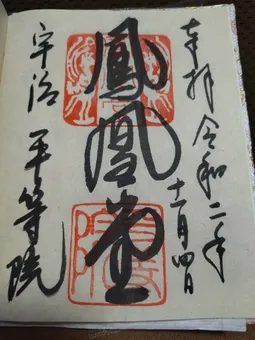 奉拝 令和二年
十一月四日
鳳凰堂
宇治 平等院